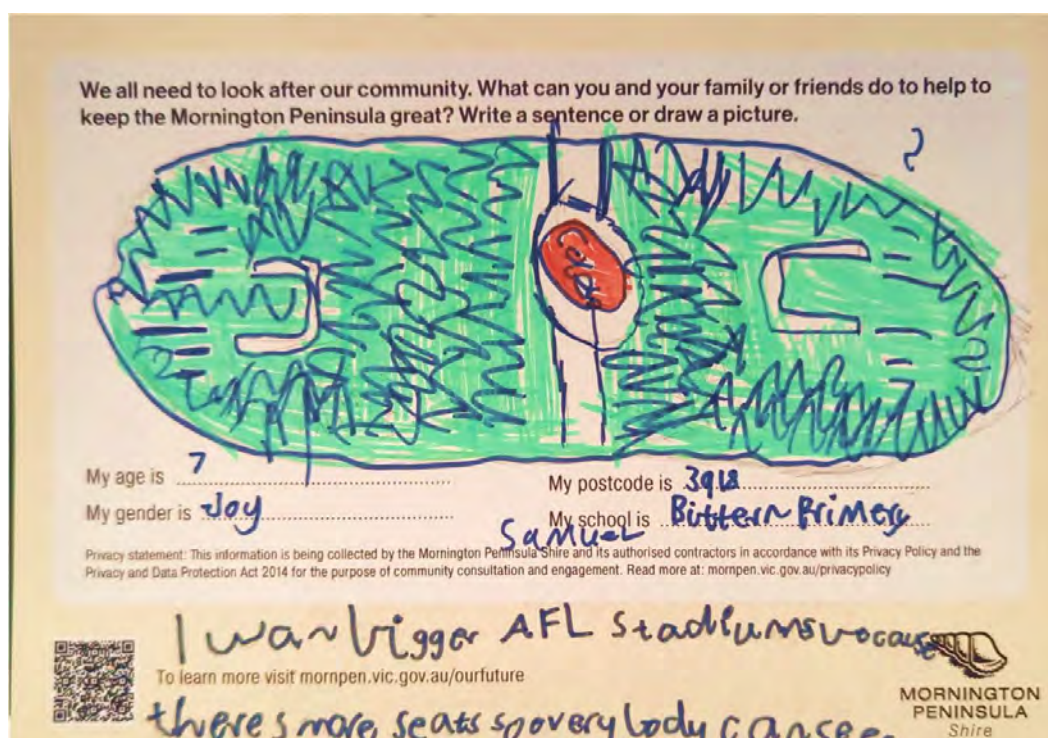 We all need to look after our community. What can you and your family or friends do to help to
keep the Mornington Peninsula great? Write a sentence or draw a picture.
My age is 7
My postcode is 3918
My gender is Joy
My school is Bittern Primery
Samuel
Privacy statement: This information is being collected by the Mornington Peninsula Shire and its authorised contractors in accordance with its Privacy Policy and the
Privacy and Data Protection Act 2014 for the purpose of community consultation and engagement. Read more at: mornpen.vic.gov.au/privacypolicy
I wan bigger AFL Stadiums bocause
To learn more visit mornpen.vic.gov.au/ourfuture
theres more seats so every body can see.
MORNINGTON
PENINSULA
Shire